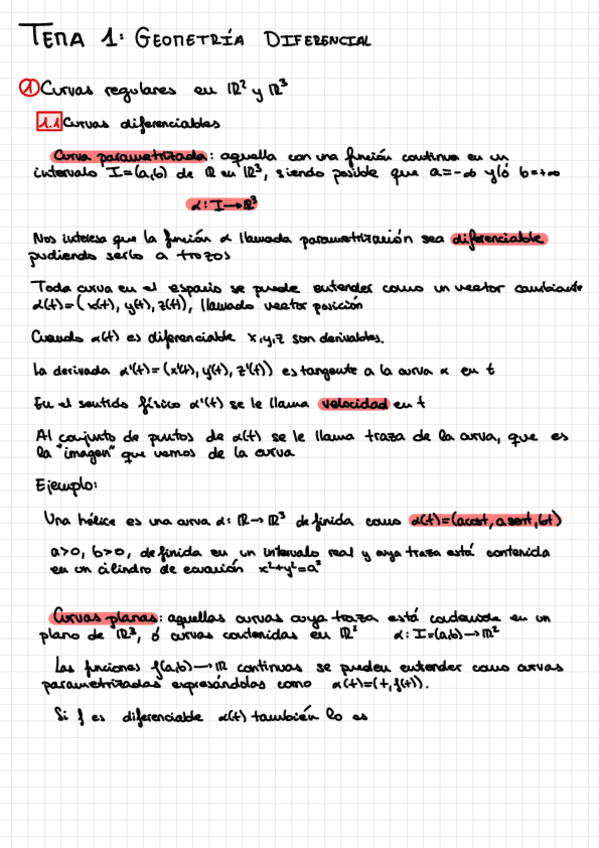 TEMA 1: GEOMETRÍA DIFERENCIAL
① Curvas regulares en ℝ² y ℝ³
1.1 Curvas diferenciables
Curva parametrizada: aquella con una función continua en un
intervalo I=(a,b) de ℝ en ℝ³, siendo posible que a=-∞ y/ó b=+∞
α: I→ℝ³
Nos interesa que la función α llamada parametrización sea diferenciable
pudiendo serlo a trozos
Toda curva en el espacio se puede entender como un vector cambiante
α(t)=(x(t), y(t), z(t)), llamado vector posición
Cuando α(t) es diferenciable x,y,z son derivables.
La derivada α'(t)=(x'(t), y'(t), z'(t)) es tangente a la curva α en t
En el sentido físico α'(t) se le llama velocidad en t
Al conjunto de puntos de α(t) se le llama traza de la curva, que es
la "imagen" que vemos de la curva
Ejemplo:
Una hélice es una curva α: ℝ→ℝ³ definida como α(t)=(acost, asent, bt)
a>0, b>0, definida en un intervalo real y cuya traza está contenida
en un cilindro de ecuación x²+y²=a²
Curvas planas: aquellas curvas cuya traza está contenida en un
plano de ℝ³, ó curvas contenidas en ℝ² α: I=(a,b)→ℝ²
Las funciones f(a,b)→ℝ continuas se pueden entender como curvas
parametrizadas expresándolas como α(t)=(t,f(t)).
Si f es diferenciable α(t) también lo es